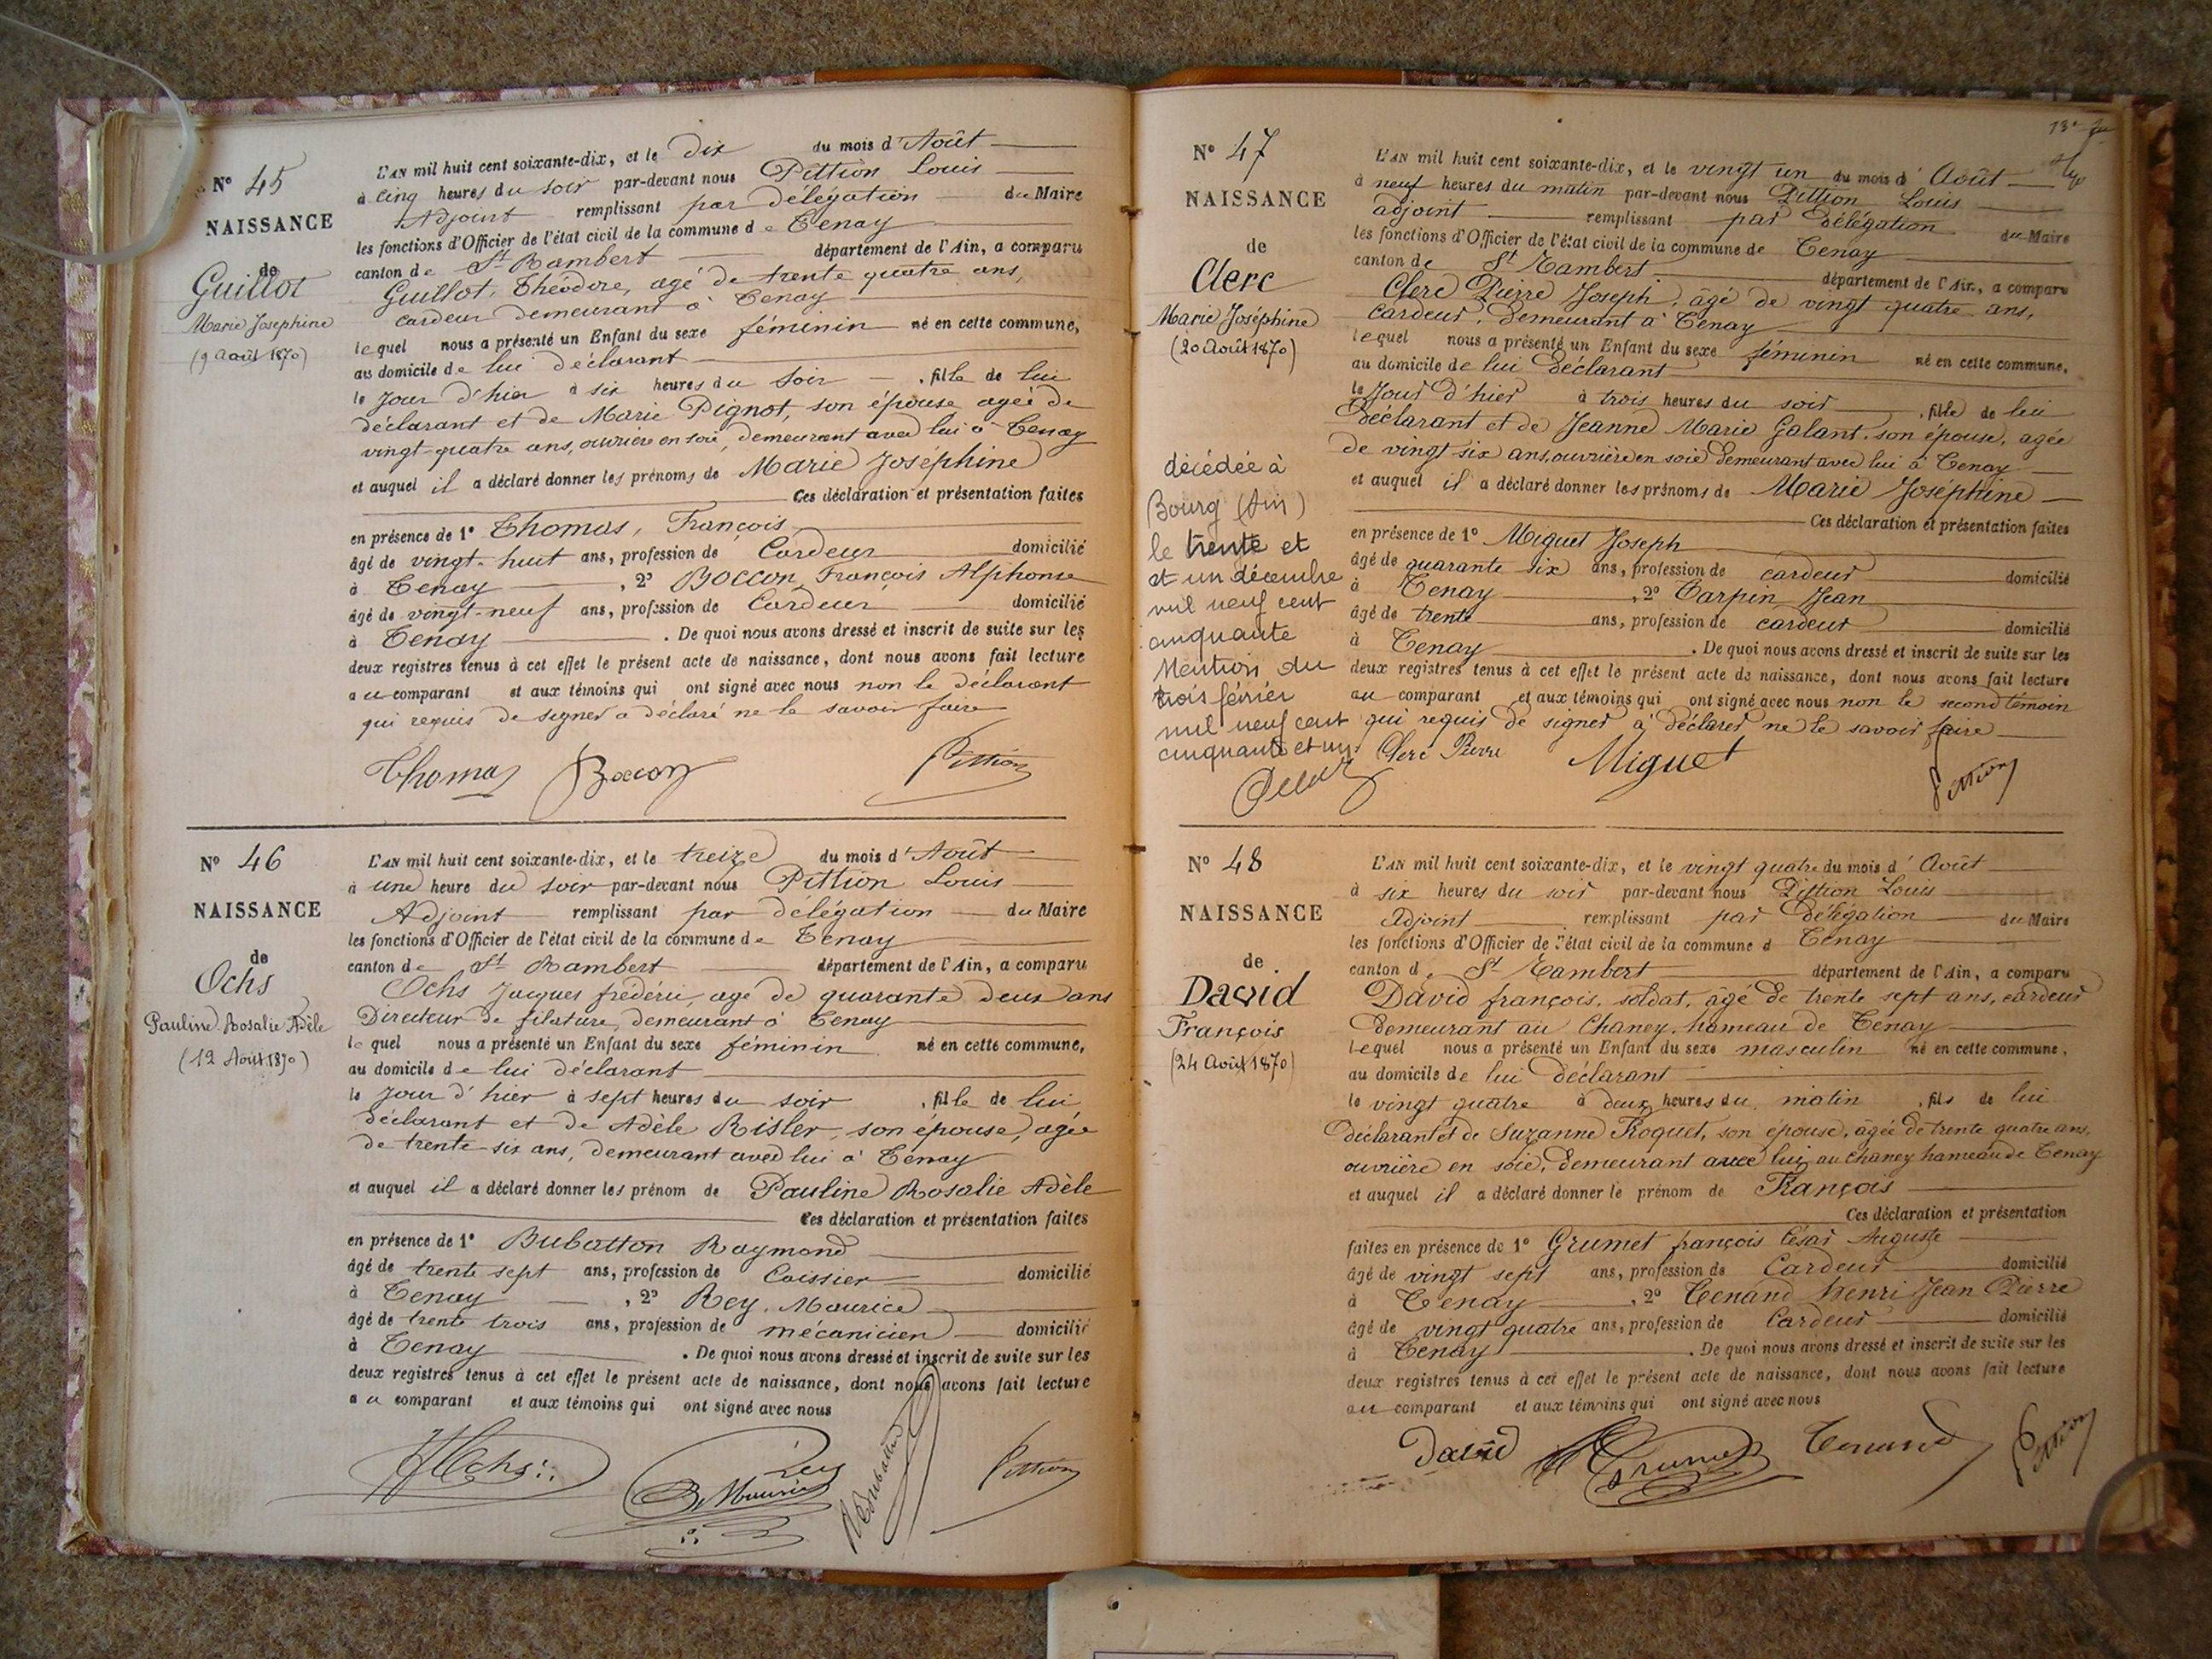 N° 45
NAISSANCE
de
Guillot
Marie Joséphine
(9 Août 1870)
L'AN mil huit cent soixante-dix, et le dix du mois d'Août
à cinq heures du soir par-devant nous Pittion Louis
Adjoint remplissant par délégation du Maire
les fonctions d'Officier de l'état civil de la commune de Tenay
canton de St Rambert département de l'Ain, a comparu
Guillot, Théodore, agé de trente quatre ans,
cardeur demeurant à Tenay
lequel nous a présenté un Enfant du sexe féminin né en cette commune,
au domicile de lui déclarant
le jour d'hier à six heures du soir , fille de lui
déclarant et de Marie Pignot, son épouse agée de
vingt-quatre ans, ouvrière en soie, demeurant avec lui à Tenay
et auquel il a déclaré donner les prénoms de Marie Joséphine
Ces déclaration et présentation faites
en présence de 1° Thomas, François
âgé de vingt-huit ans, profession de Cardeur domicilié
à Tenay , 2° Boccon, François Alphonse
âgé de vingt-neuf ans, profession de Cardeur domicilié
à Tenay . De quoi nous avons dressé et inscrit de suite sur les
deux registres tenus à cet effet le présent acte de naissance, dont nous avons fait lecture
au comparant et aux témoins qui ont signé avec nous non le déclarant
qui requis de signer a déclaré ne le savoir faire
Thomas Boccon Pittion
N° 46
NAISSANCE
de
Ochs
Pauline Rosalie Adèle
(12 Août 1870)
L'AN mil huit cent soixante-dix, et le treize du mois d'Août
à une heure du soir par-devant nous Pittion Louis
Adjoint remplissant par délégation du Maire
les fonctions d'Officier de l'état civil de la commune de Tenay
canton de St Rambert département de l'Ain, a comparu
Ochs Jacques frédéric, agé de quarante deux ans
Directeur de filature, demeurant à Tenay
lequel nous a présenté un Enfant du sexe féminin né en cette commune,
au domicile de lui déclarant
le jour d'hier à sept heures du soir , fille de lui
déclarant et de Adèle Risler, son épouse, agée
de trente-six ans, demeurant avec lui à Tenay
et auquel il a déclaré donner les prénom de Pauline Rosalie Adèle
Ces déclaration et présentation faites
en présence de 1° Bubatton Raymond
âgé de trente sept ans, profession de Caissier domicilié
à Tenay , 2° Rey, Maurice
âgé de trente trois ans, profession de mécanicien domicilié
à Tenay . De quoi nous avons dressé et inscrit de suite sur les
deux registres tenus à cet effet le présent acte de naissance, dont nous avons fait lecture
au comparant et aux témoins qui ont signé avec nous
Ochs Rey Maurice Pittion
13e
N° 47
NAISSANCE
de
Clerc
Marie Joséphine
(20 Août 1870)
décédée à
Bourg (Ain)
le trente et
et un décembre
mil neuf cent
cinquante
Mention du
trois février
mil neuf cent
cinquante et un
L'AN mil huit cent soixante-dix, et le vingt un du mois d'Août
à neuf heures du matin par-devant nous Pittion Louis
adjoint remplissant par délégation du Maire
les fonctions d'Officier de l'état civil de la commune de Tenay
canton de St Rambert département de l'Ain, a comparu
Clerc Pierre Joseph, âgé de vingt quatre ans,
cardeur, demeurant à Tenay
lequel nous a présenté un Enfant du sexe féminin né en cette commune,
au domicile de lui déclarant
le jour d'hier à trois heures du soir , fille de lui
déclarant et de Jeanne Marie Galant, son épouse, agée
de vingt six ans, ouvrière en soie demeurant avec lui à Tenay
et auquel il a déclaré donner les prénoms de Marie Joséphine
Ces déclaration et présentation faites
en présence de 1° Miguet Joseph
âgé de quarante six ans, profession de cardeur domicilié
à Tenay , 2° Carpin Jean
âgé de trente ans, profession de cardeur domicilié
à Tenay . De quoi nous avons dressé et inscrit de suite sur les
deux registres tenus à cet effet le présent acte de naissance, dont nous avons fait lecture
au comparant et aux témoins qui ont signé avec nous non le second témoin
qui requis de signer a déclarer ne le savoir faire
Clerc Pierre Miguet Pittion
N° 48
NAISSANCE
de
David
François
(24 Août 1870)
L'AN mil huit cent soixante-dix, et le vingt quatre du mois d'Août
à six heures du soir par-devant nous Pittion Louis
Adjoint remplissant par délégation du Maire
les fonctions d'Officier de l'état civil de la commune d Tenay
canton de St Rambert département de l'Ain, a comparu
David françois, soldat, âgé de trente sept ans, cardeur
demeurant au Chaney, hameau de Tenay
Lequel nous a présenté un Enfant du sexe masculin né en cette commune,
au domicile de lui déclarant
le vingt quatre à deux heures du matin , fils de lui
déclarant et de Suzanne Roguet, son épouse, âgée de trente quatre ans,
ouvrière en soie, demeurant avec lui, au Chaney hameau de Tenay
et auquel il a déclaré donner le prénom de François
Ces déclaration et présentation
faites en présence de 1° Grumet françois César Auguste
âgé de vingt sept ans, profession de Cardeur domicilié
à Tenay , 2° Tenand Henri Jean Pierre
âgé de vingt quatre ans, profession de Cardeur domicilié
à Tenay . De quoi nous avons dressé et inscrit de suite sur les
deux registres tenus à cet effet le présent acte de naissance, dont nous avons fait lecture
au comparant et aux témoins qui ont signé avec nous
David Grumet Tenand Pittion